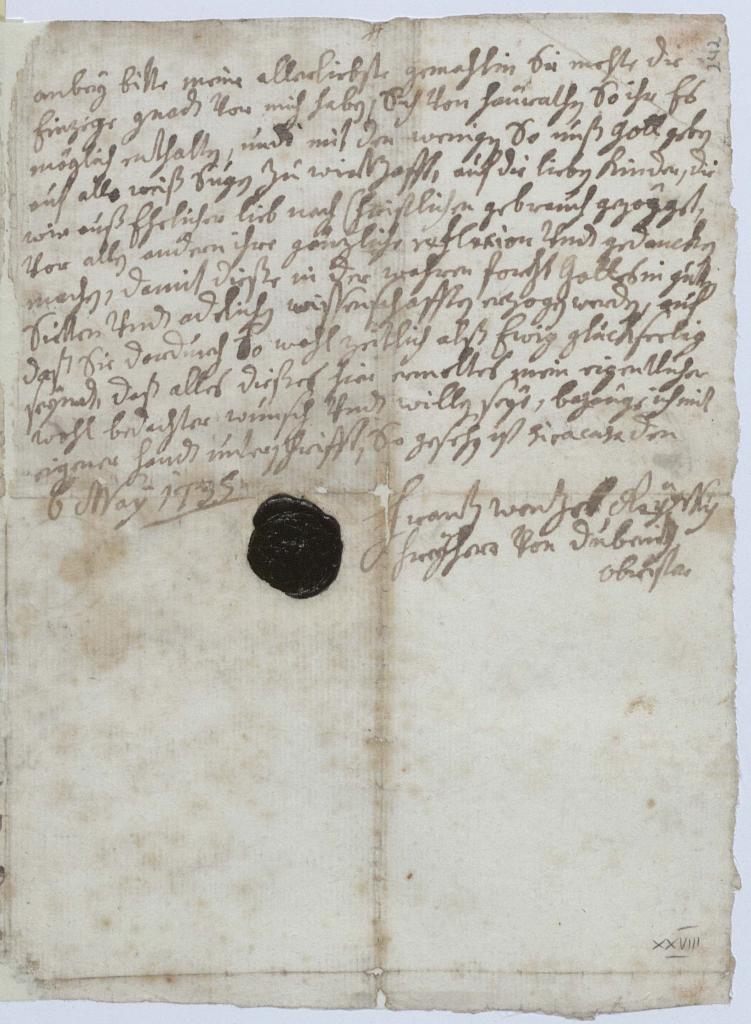 anbeÿ bitte meine allerliebste gemahlin Sie mechte die
Einzige gnadt vor mich haben, Sich von heurathen So ihr Es
möglich enthalten, undt mit den wenigen So unß Gott geben
auf alle weiß Suchen zu wirtschafften, auf die lieben Kinder, die
wir auß Ehelicher lieb nach Christlichen gebrauch gezeüget,
vor allen andern ihre gäntzliche reflexion undt gedancken
machen, damit dieße in der wahren forcht Gottes in gutten
Sitten undt adelichen wissenschafften erzogen werden, auf
daß Sie dardurch So wohl zeitlich alß Ewig glückseelig
seÿndt, daß alles dießes hier ermeltes mein eigentlicher
wohl bedachter wunsch undt willen seÿe, bezeüge ich mit
eigener handt unterschrifft, So geschehen ist den
6 Maÿ 1735
Frantz wentzel
freÿherr von Dubenitz
obrister
242
XXVIII